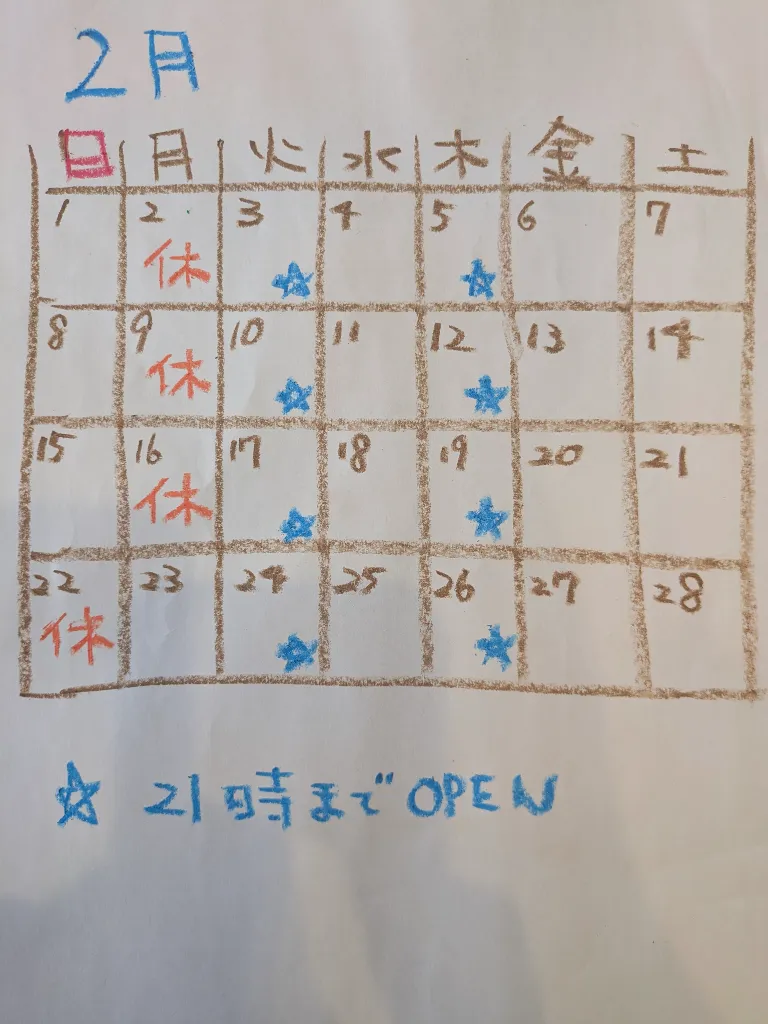 2月
日 月 火 水 木 金 土
1 2 3 4 5 6 7
休 ☆ ☆
8 9 10 11 12 13 14
休 ☆ ☆
15 16 17 18 19 20 21
休 ☆ ☆
22 23 24 25 26 27 28
休 ☆ ☆
☆ 21時までOPEN